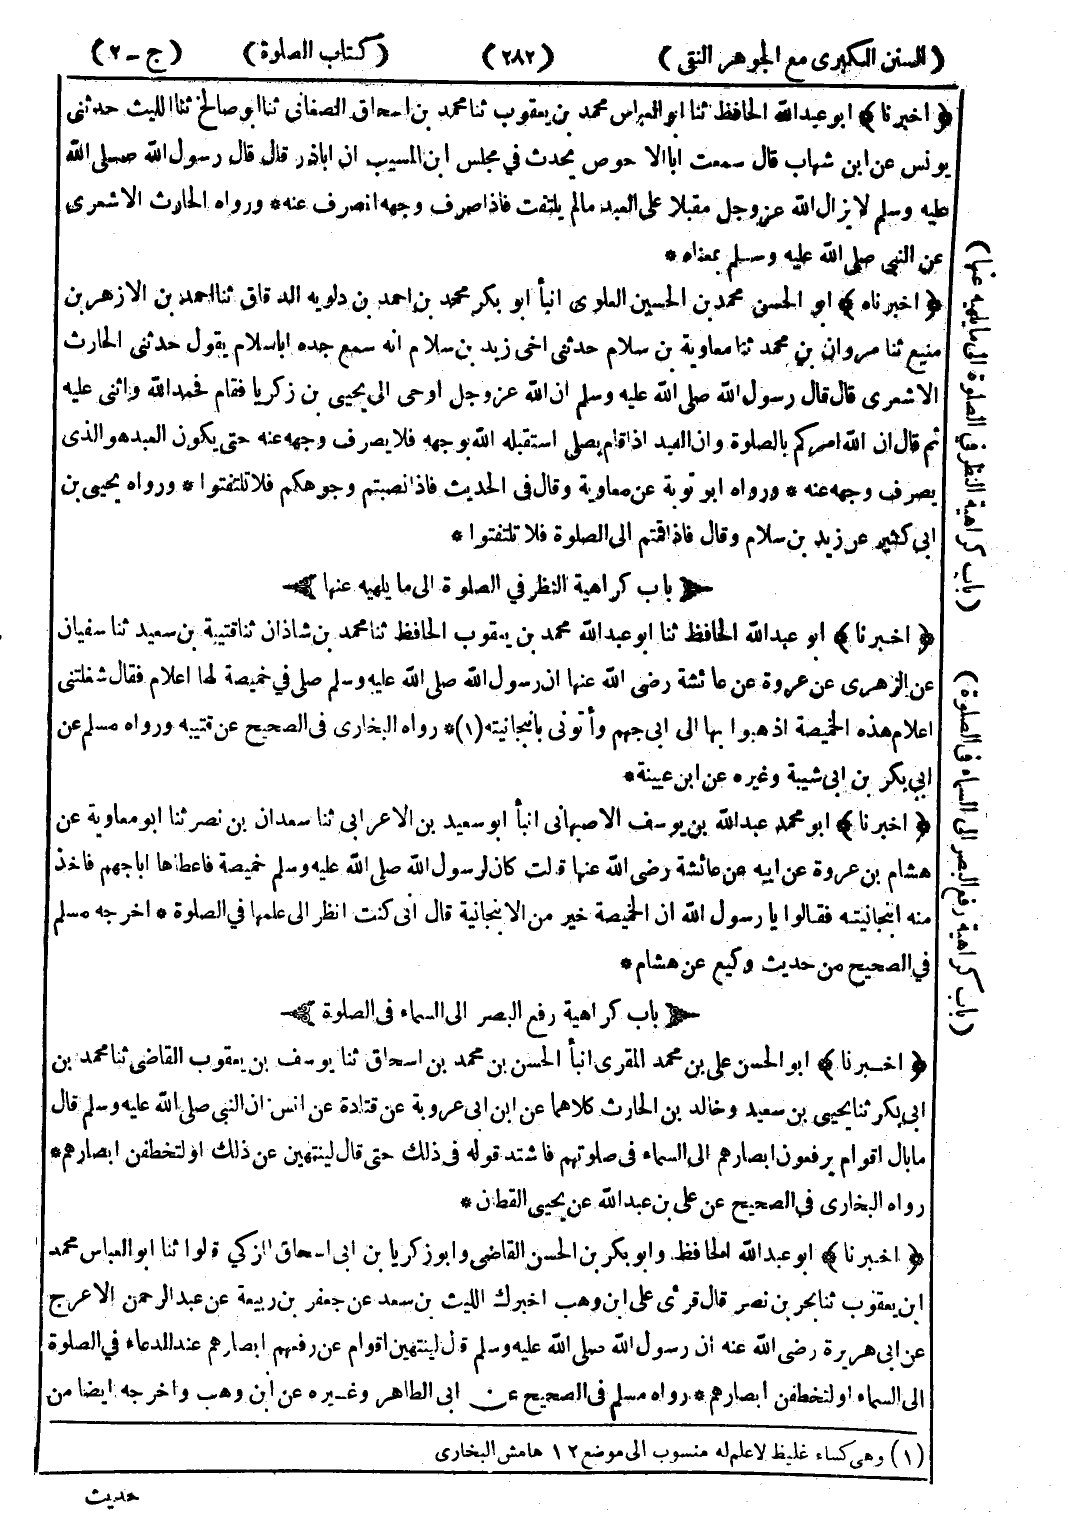 (السنن الكبرى مع الجوهر النقى) (٢٨٢) (كتاب الصلوة) (ج ـ ٢)
﴿ اخبرنا ﴾ ابو عبدالله الحافظ ثنا ابو العباس محمد بن يعقوب ثنا محمد بن اسحاق الصغانى ثنا ابو صالح ثنا الليث حدثنى
يونس عن ابن شهاب قال سمعت ابا الاحوص يحدث في مجلس ابن المسيب ان اباذر قال قال رسول الله صلى الله
عليه وسلم لا يزال الله عزوجل مقبلا على العبد مالم يلتفت فاذا صرف وجهه انصرف عنه * ورواه الحارث الاشعرى
عن النبي صلى الله عليه وسلم بمعناه *
﴿ اخبرناه ﴾ ابو الحسن محمد بن الحسين العلوى انبأ ابو بكر محمد بن احمد بن دلويه الدقاق ثنا احمد بن الازهر بن
منيع ثنا مروان بن محمد ثنا معاوية بن سلام حدثنى اخى زيد بن سلام انه سمع جده اباسلام يقول حدثنى الحارث
الاشعرى قال قال رسول الله صلى الله عليه وسلم ان الله عزوجل اوحى الى يحيى بن زكريا فقام فحمد الله واثنى عليه
ثم قال ان الله امركم بالصلوة وان العبد اذا قام يصلى استقبله الله بوجهه فلا يصرف وجهه عنه حتى يكون العبد هو الذى
يصرف وجهه عنه * ورواه ابو توبة عن معاوية وقال فى الحديث فاذا نصبتم وجوهكم فلا تلتفتوا * ورواه يحيى بن
ابى كثير عن زيد بن سلام وقال فاذا قمتم الى الصلوة فلا تلتفتوا *
باب كراهية النظر في الصلوة الى ما يلهيه عنها
﴿ اخبرنا ﴾ ابو عبدالله الحافظ ثنا ابو عبدالله محمد بن يعقوب الحافظ ثنا محمد بن شاذان ثنا قتيبة بن سعيد ثنا سفيان
عن الزهرى عن عروة عن عائشة رضى الله عنها ان رسول الله صلى الله عليه وسلم صلى في خميصة لها اعلام فقال شغلتنى
اعلام هذه الخميصة اذهبوا بها الى ابى جهم وأتونى بانبجانيته (١) * رواه البخارى فى الصحيح عن قتيبه ورواه مسلم عن
ابي بكر بن ابى شيبة وغيره عن ابن عيينة *
﴿ اخبرنا ﴾ ابو محمد عبدالله بن يوسف الاصبهانى انبأ ابو سعيد بن الاعرابى ثنا سعدان بن نصر ثنا ابو معاوية عن
هشام بن عروة عن ابيه عن عائشة رضى الله عنها قالت كان لرسول الله صلى الله عليه وسلم خميصة فاعطاها اباجهم فاخذ
منه انبجانيته فقالوا يا رسول الله ان الخميصة خير من الانبجانية قال انى كنت انظر الى علمها في الصلوة * اخرجه مسلم
في الصحيح من حديث وكيع عن هشام *
باب كراهية رفع البصر الى السماء فى الصلوة
﴿ اخبرنا ﴾ ابو الحسن على بن محمد المقرى انبأ الحسن بن محمد بن اسحاق ثنا يوسف بن يعقوب القاضى ثنا محمد بن
ابى بكر ثنا يحيى بن سعيد وخالد بن الحارث كلاهما عن ابن ابى عروبة عن قتادة عن انس ان النبى صلى الله عليه وسلم قال
مابال اقوام يرفعون ابصارهم الى السماء فى صلوتهم فاشتد قوله فى ذلك حتى قال لينتهين عن ذلك اولتخطفن ابصارهم *
رواه البخارى فى الصحيح عن على بن عبدالله عن يحيى القطان *
﴿ اخبرنا ﴾ ابو عبدالله الحافظ وابو بكر بن الحسن القاضى وابو زكريا بن ابى اسحاق المزكي قالوا ثنا ابو العباس محمد
ابن يعقوب ثنا بحر بن نصر قال قرئ على ابن وهب اخبرك الليث بن سعد عن جعفر بن ربيعة عن عبدالرحمن الاعرج
عن ابى هريرة رضى الله عنه ان رسول الله صلى الله عليه وسلم قال لينتهين اقوام عن رفعهم ابصارهم عند الدعاء في الصلوة
الى السماء اولتخطفن ابصارهم * رواه مسلم فى الصحيح عن ابى الطاهر وغيره عن ابن وهب واخرجه ايضا من
(١) وهى كساء غليظ لا علم له منسوب الى موضع ١٢ هامش البخارى
حديث
(باب كراهية النظر في الصلوة الى ما يلهيه عنها)
(باب كراهية رفع البصر الى السماء فى الصلوة)